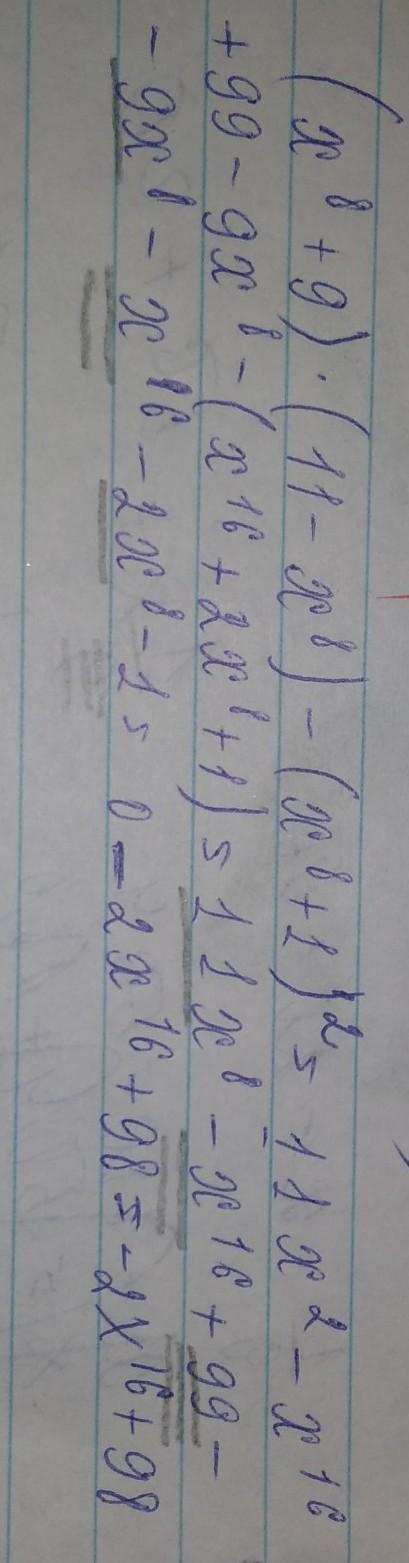 (x⁸ + 9) · (11 - x⁸) - (x⁸ + 1)² = 11x² - x¹⁶
+ 99 - 9x⁸ - (x¹⁶ + 2x⁸ + 1) = 11x⁸ - x¹⁶ + 99 -
- 9x⁸ - x¹⁶ - 2x⁸ - 1 = 0 - 2x¹⁶ + 98 = -2x¹⁶ + 98